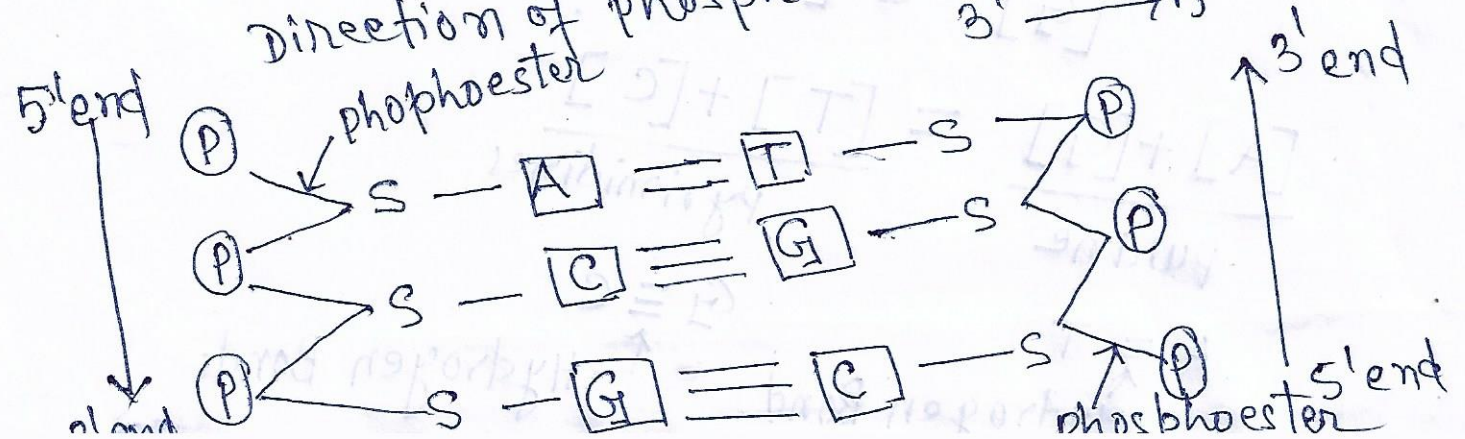 Direction of 3'
5'end phophoester 3'end
P P
S A T S
P P
S C G S
P P
S G C S
phosphoester 5'end